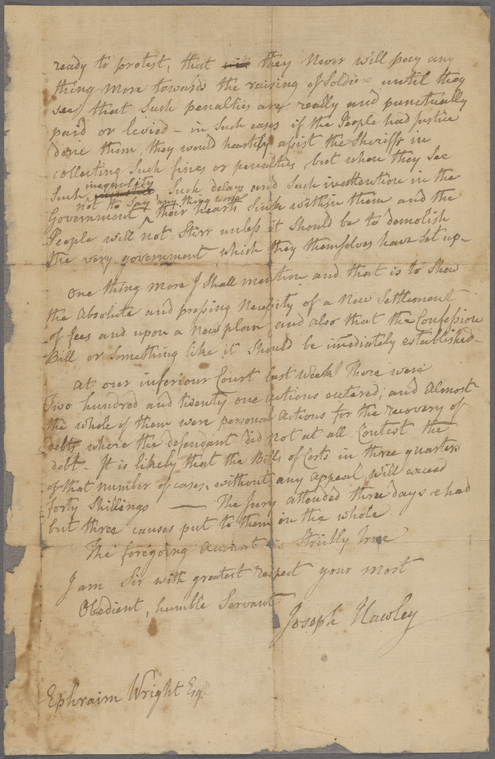 ready to protest, that they Never will pay any
thing more towards the raising of Soldie until they
see that Such penalties are really and punctually
paid or levied - in such cases if the People had Justice
done them, they would heartily assist the Sheriffs in
collecting Such fines or penalties, but when they See
Such inequality Such delay and Such inattention in the
not to Say any thing worse
Government ^ their hearts Sink within them and the
People will not Stirr unless it Should be to demolish
the very government which they themselves have Set up-
One thing more I Shall mention and that is to Shew
the Absolute and pressing Necessity of a New Settlement
of fees and upon a New plan and also that the Confession
Bill or Something like it Should be imediately established-
At our inferiour Court last week There were
Two hundred and twenty one actions entered, and Almost
the whole of them were personal Actions for the recovery of
debts where the defendant did not at all Contest the
debt - It is likely that the Bills of Costs in three quarters
of that number of cases without any Appeal will exceed
forty Shillings — The Jury attended three days & had
but three causes put to them in the whole
The foregoing Account is Strictly true
I am Sir with greatest respect your most
Obedient, humble Servant
Joseph Hawley
Ephraim Wright Esq